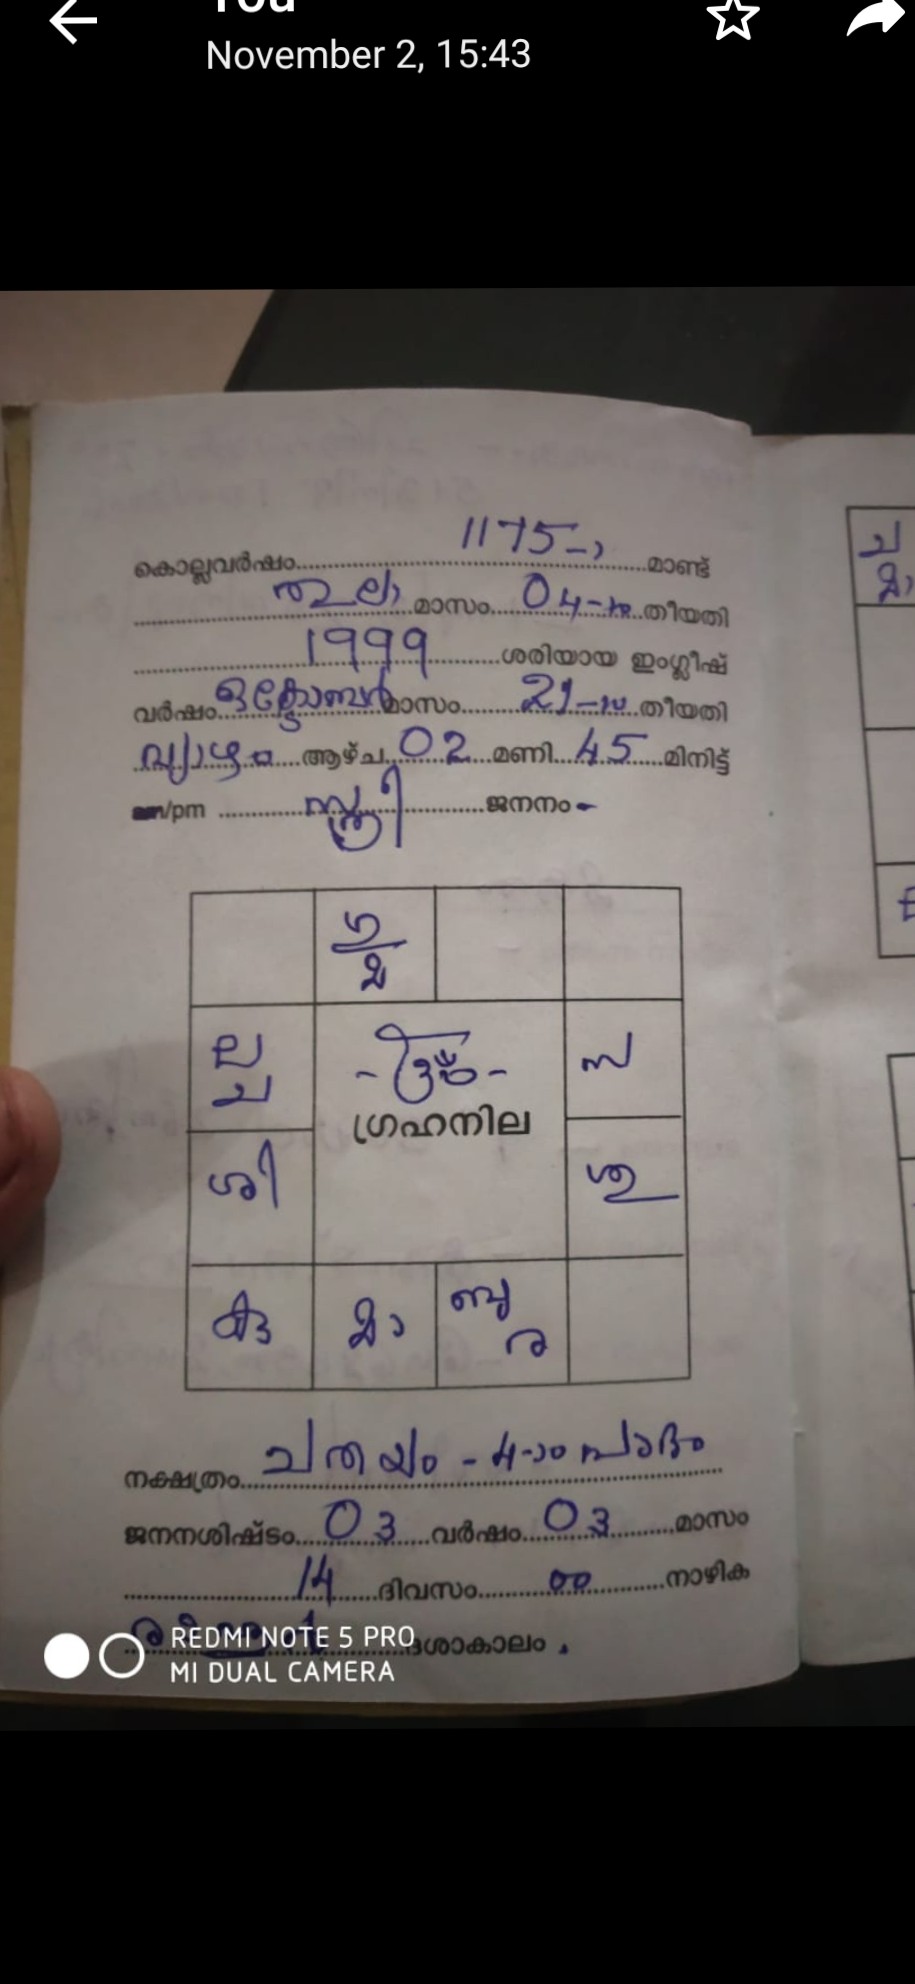 November 2, 15:43
കൊല്ലവർഷം 1175-ാ മാണ്ട്
തുലാ മാസം 04-ാം തീയതി
1999 ശരിയായ ഇംഗ്ലീഷ്
വർഷം ഒക്ടോബർ മാസം 21-ാം തീയതി
വ്യാഴം ആഴ്ച 02 മണി 45 മിനിട്ട്
/pm സ്ത്രീ ജനനം
ഗു
മ
ല
ച
സ
-ഓം-
ഗ്രഹനില
ശി
ശു
കു മാ ബു
ര
നക്ഷത്രം ചതയം - 4-ാം പാദം
ജനനശിഷ്ടം 03 വർഷം 03 മാസം
14 ദിവസം 00 നാഴിക
ദശാകാലം
REDMI NOTE 5 PRO
MI DUAL CAMERA
ച
മാ